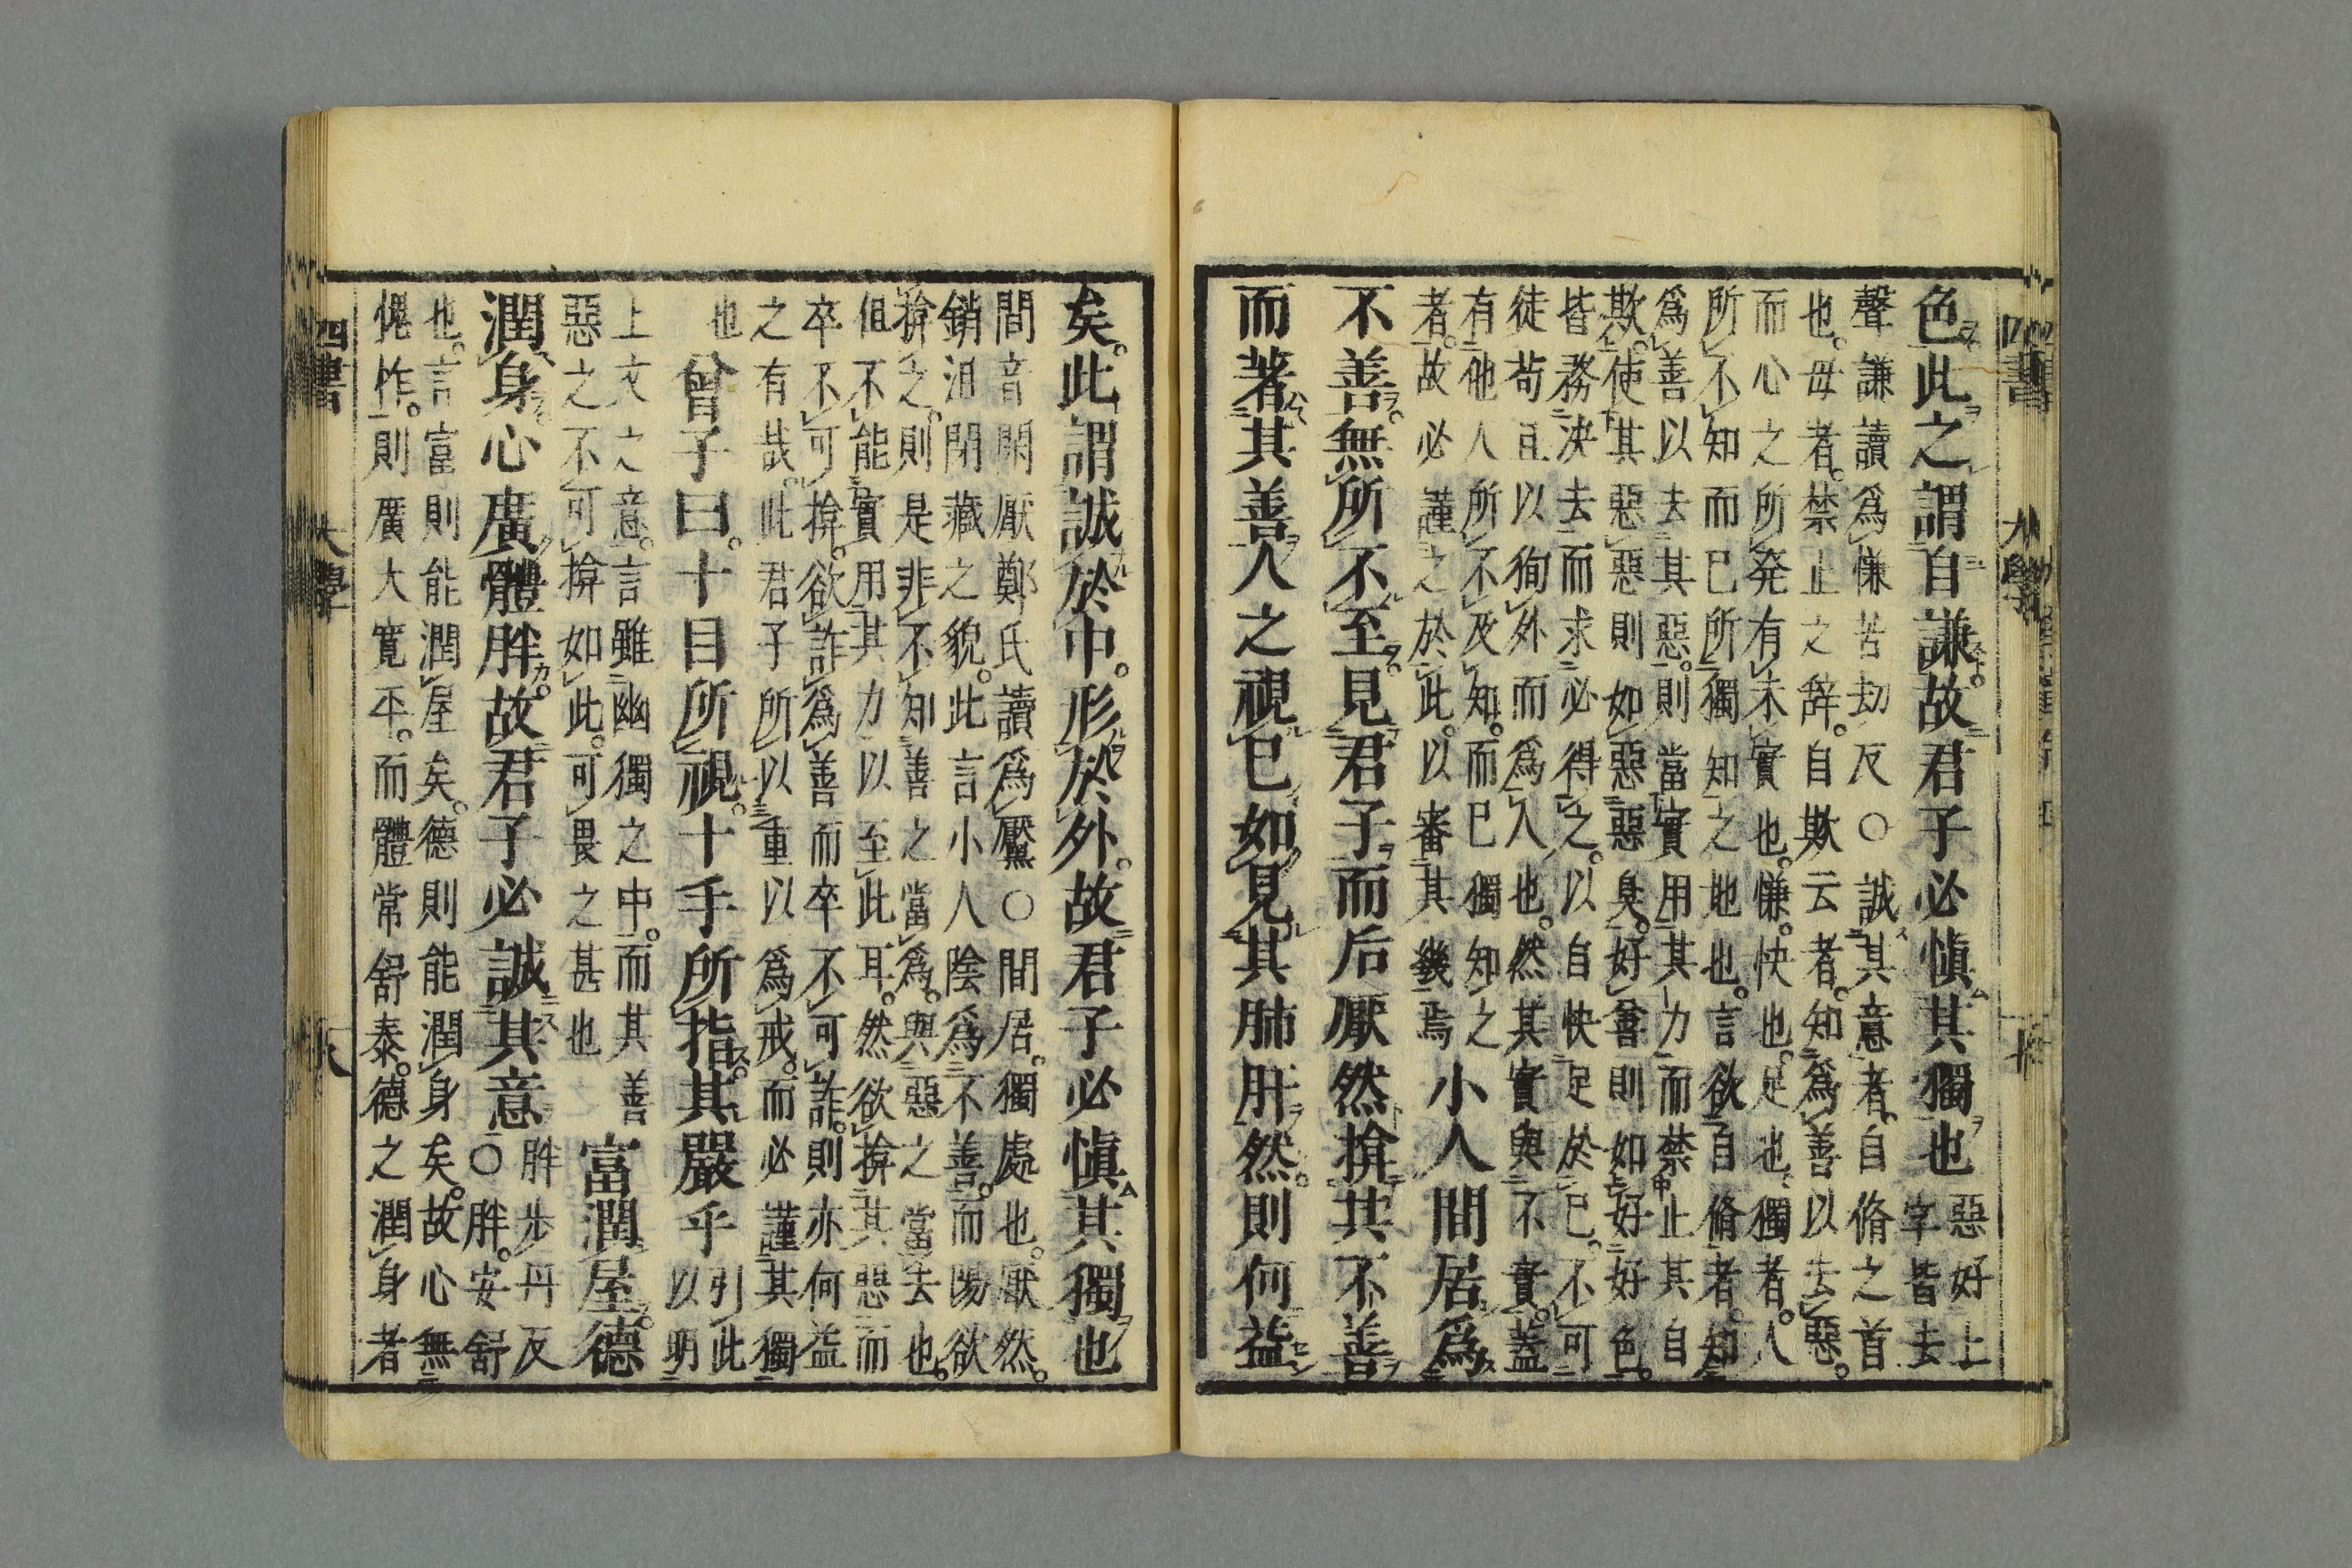 色此之謂自謙故君子必愼其獨也
惡好上
字皆去
聲謙讀爲慊苦劫反○誠其意者自脩之首
也。毋者。禁止之辭。自欺云者。知爲善以去惡。
而心之所発有未實也。慊。快也。足也。獨者。人
所不知而已所獨知之地也。言欲自脩者。知
爲善以去其惡。則當實用其力而禁止其自
欺。使其惡惡則如惡惡臭。好善則如好好色。
皆務決去而求必得之。以自快足於已。不可
徒苟且以徇外而爲人也。然其實與不實。蓋
有他人所不及知。而已獨知之
者。故必謹之於此。以審其幾焉
小人閒居爲
不善。無所不至。見君子而后厭然揜其不善
而著其善人之視已如見其肺肝然。則何益
矣。此謂誠於中。形於外。故君子必愼其獨也
閒音閑厭鄭氏讀爲黶○閒居。獨處也。厭然。
銷沮閉藏之貌。此言小人陰爲不善。而陽欲
揜之。則是非不知善之當爲。與惡之當去也。
但不能實用其力以至此耳。然欲揜其惡而
卒不可揜。欲詐爲善而卒不可詐。則亦何益
之有哉。此君子所以重以爲戒。而必謹其獨
也
曾子曰。十目所視。十手所指。其嚴乎
引此
以明
上文之意。言雖幽獨之中。而其善
惡之不可揜如此。可畏之甚也
富潤屋。德
潤身。心廣體胖。故君子必誠其意
胖步丹反
○胖。安舒
也。言富則能潤屋矣。德則能潤身矣。故心無
愧怍。則廣大寬平。而體常舒泰。德之潤身者
四書 大學 八